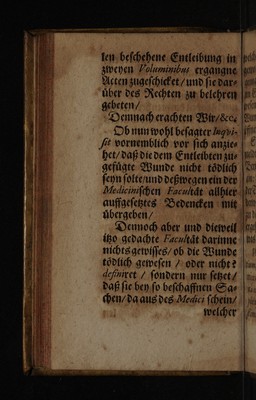 len beschehene Entleibung in
zweyen Voluminibus ergangne
Acten zugeschicket / und sie dar-
über des Rechten zu belehren
gebeten /
Demnach erachten Wir / &cc.
Ob nun wohl besagter Inqvi-
sit vornemblich vor sich anzie-
het / daß die dem Entleibten zu-
gefügte Wunde nicht tödlich
seyn solte / und deßwegen ein der
Medicinischen Facultät allhier
auffgesetztes Bedencken mit
übergeben /
Dennoch aber und dieweil
itzo gedachte Facultät darinne
nichts gewisses / ob die Wunde
tödlich gewesen / oder nicht
definiret / sondern nur setzet /
daß sie bey so beschaffnen Sa-
chen / da aus des Medici schein /
welcher